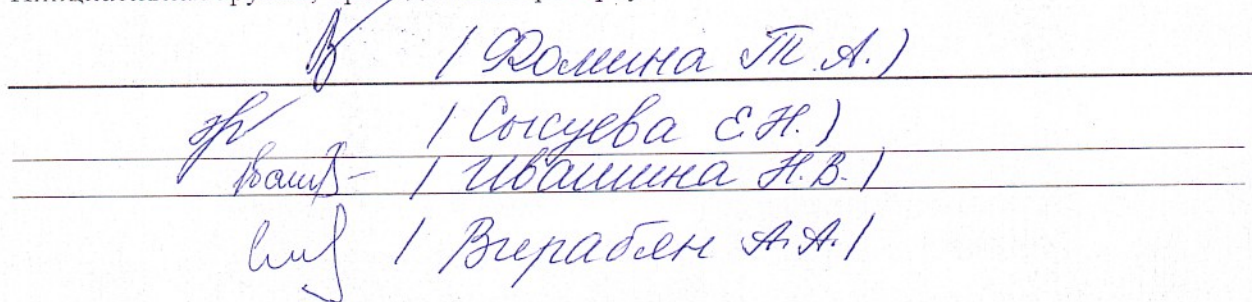 / Фомина Т.А. /
/ Сысуева Е.Н. /
/ Ивашина Н.В. /
/ Вирабян А.А. /